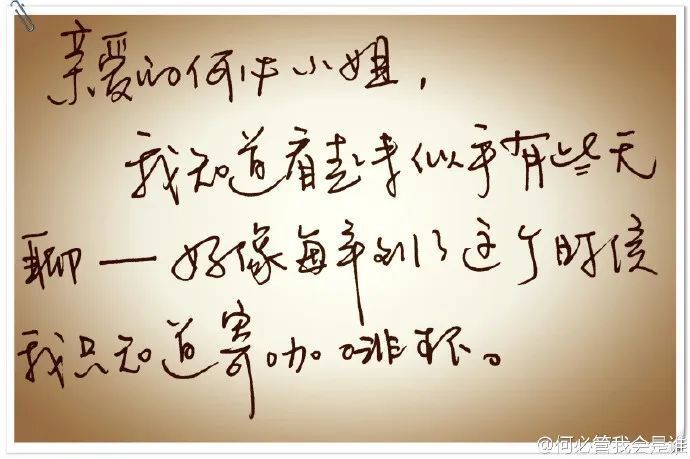 亲爱的何北小姐，
我知道看起来似乎有些无
聊一好像每年到了这个时候
我只知道寄咖啡杯。
@何必管我会是谁